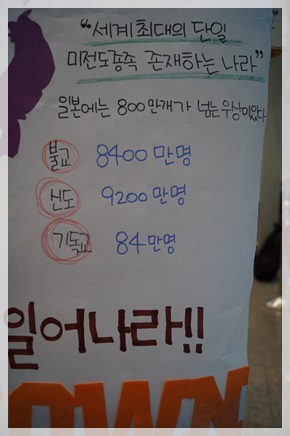 “세계 최대의 단일
미전도종족 존재하는 나라”
일본에는 800만개가 넘는 우상이 있다
불교 8400만명
신도 9200만명
기독교 84만명
일어나라!!
OWN